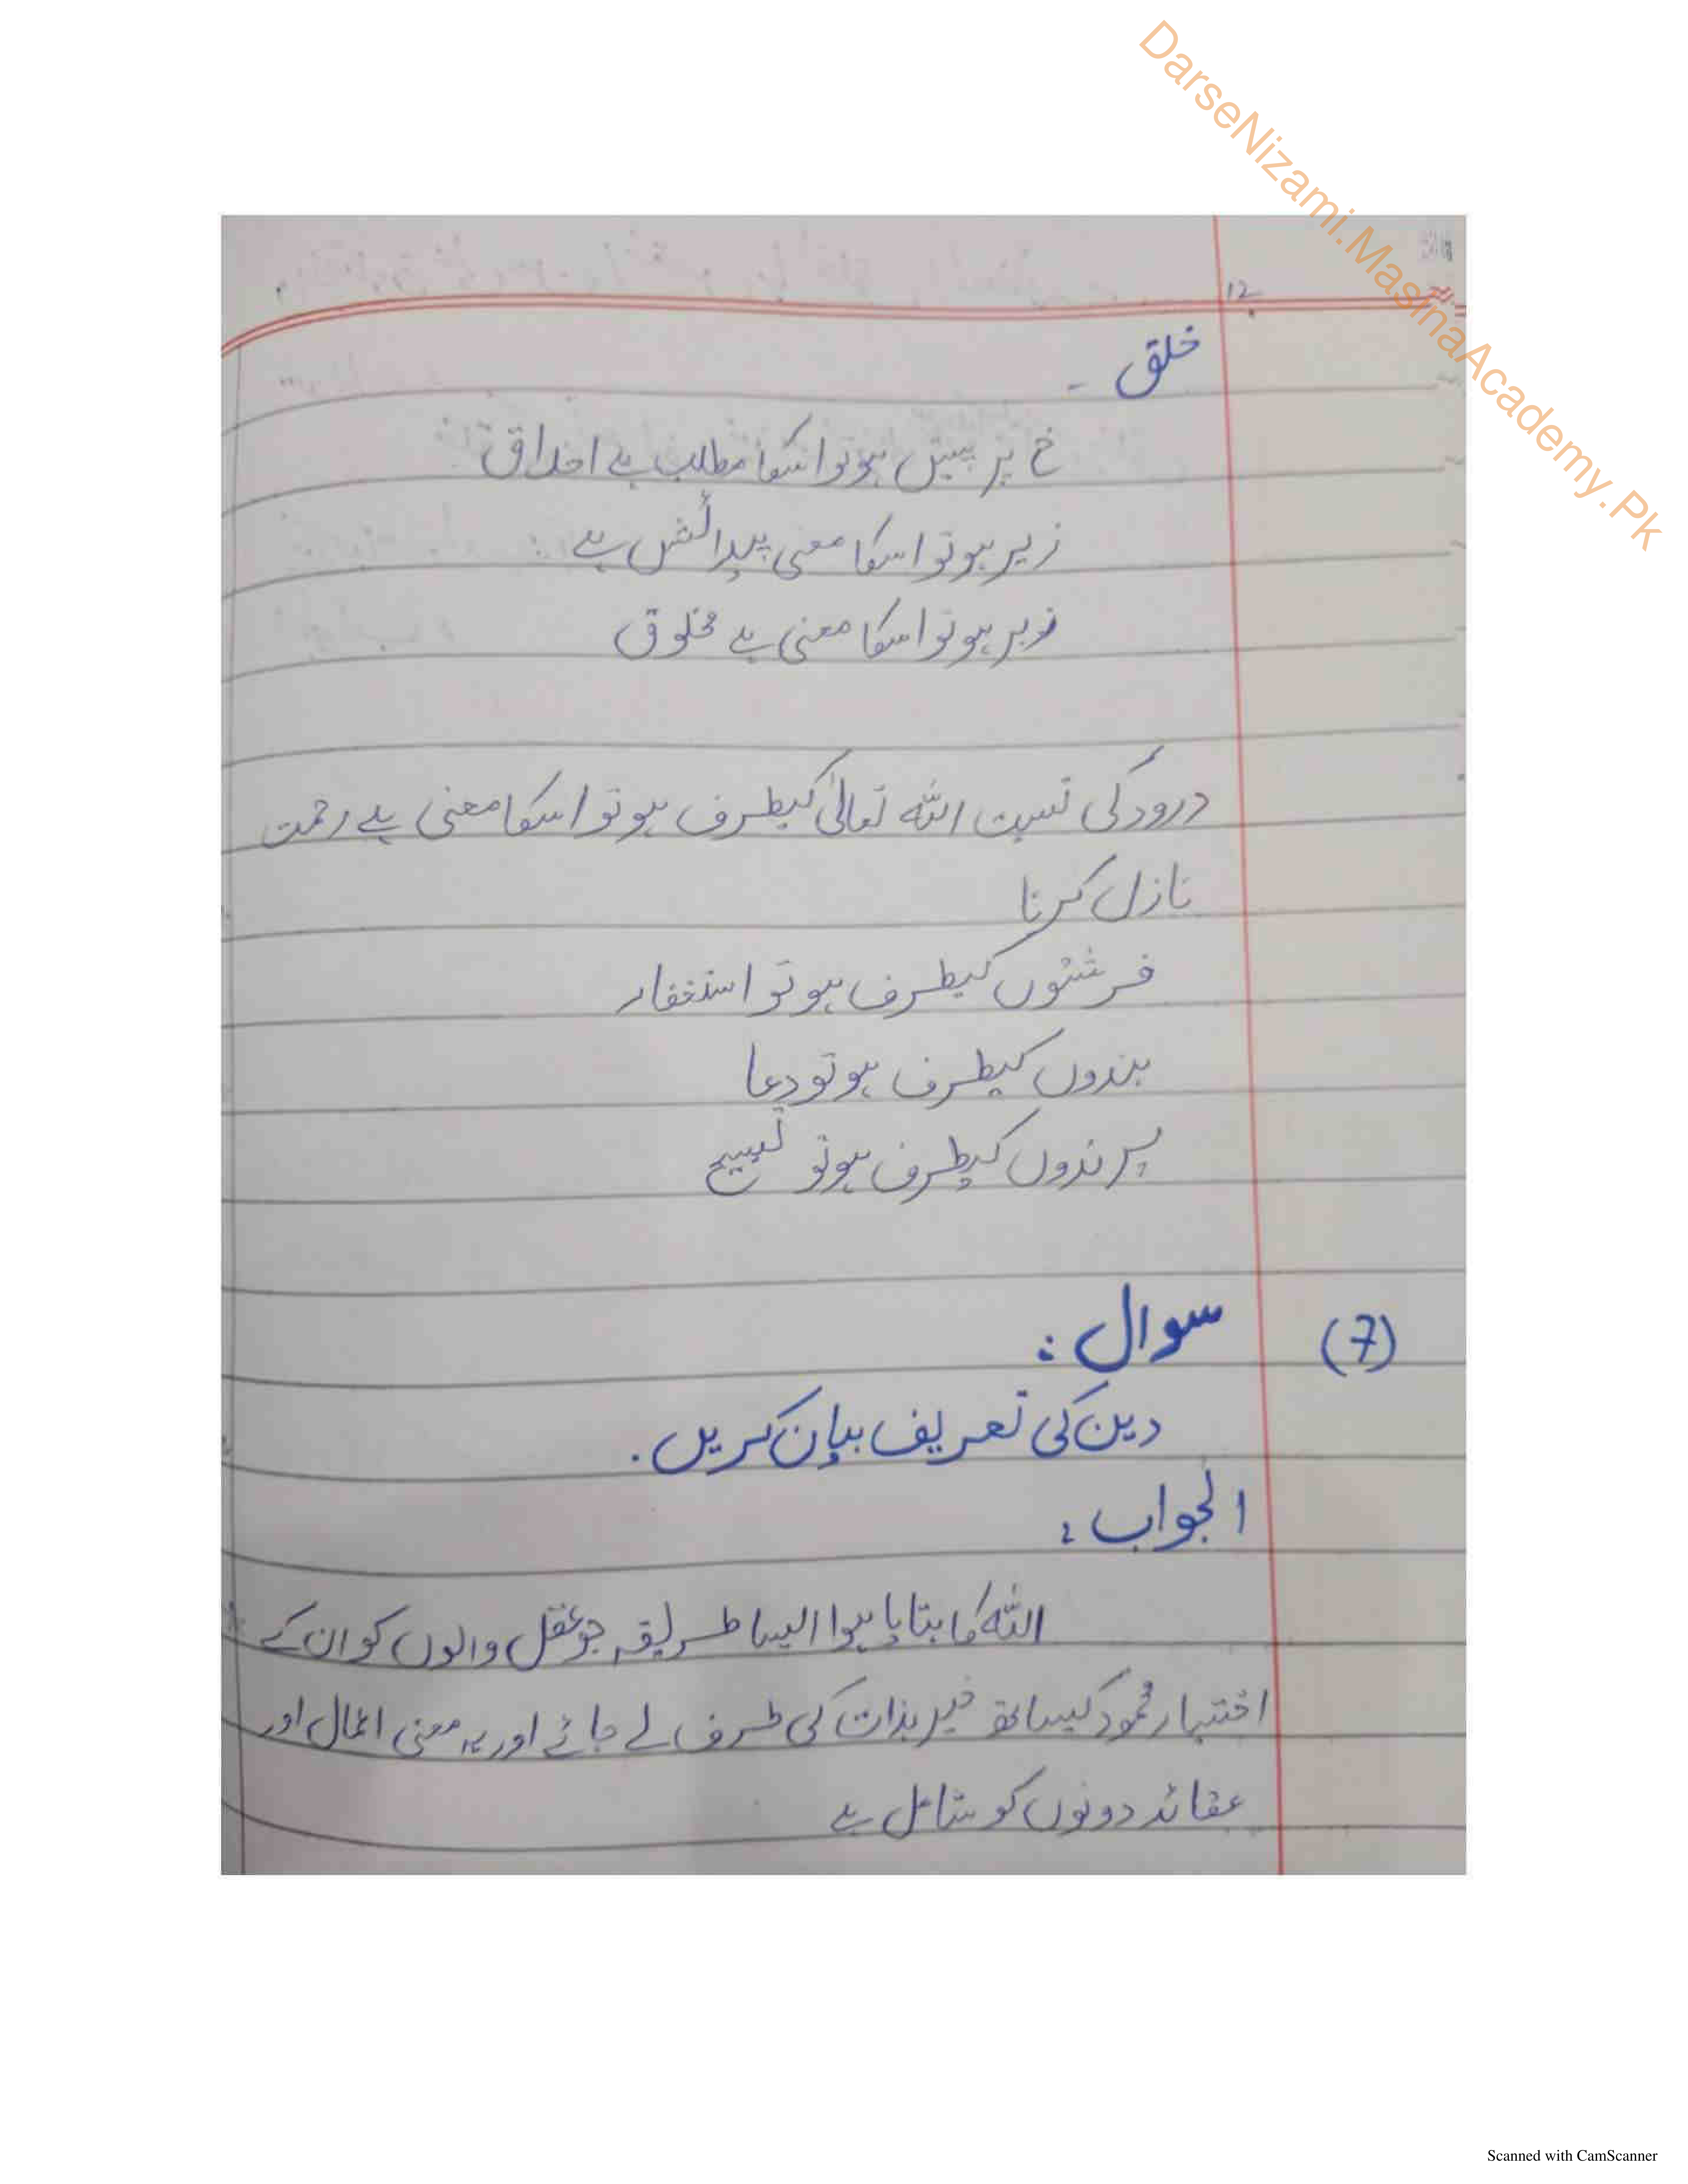 DarseNizami.MasinaAcademy.Pk
12
خلق ۔
خ پر پیش ہو تو اسکا مطلب ہے اخلاق
زیر ہو تو اسکا معنی پیدائش ہے
زبر ہو تو اسکا معنی ہے مخلوق
درود کی نسبت اللہ تعالیٰ کیطرف ہو تو اسکا معنی ہے رحمت
نازل کرنا
فرشتوں کیطرف ہو تو استغفار
بندوں کیطرف ہو تو دعا
پرندوں کیطرف ہو تو تسبیح
(7) سوال :
دین کی تعریف بیان کریں .
الجواب :
اللہ کا بتایا ہوا ایسا طریقہ جو عقل والوں کو ان کے
اختیار محمود کیساتھ خیر بذات کی طرف لے جائے اور یہ معنی اعمال اور
عقائد دونوں کو شامل ہے
Scanned with CamScanner